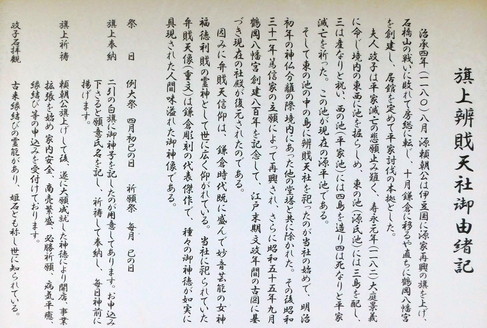 旗上辨財天社御由緒記
治承四年(一一八〇)八月 源頼朝公は伊豆国に源家再興の旗を上げ、
石橋山の戦いに敗れて房総に転じ、十月鎌倉に移るや直ちに鶴岡八幡宮
を創建し、居館を定めて平家討伐の本拠とした。
夫人政子は平家滅亡の悲願止み難く、寿永元年(一一八二)大庭景義
に命じ境内の東西に池を掘らしめ、東の池(源氏池)には三島を配し、
三は産なりと祝い、西の池(平家池)には四島を造り四は死なりと平家
滅亡を祈った。この池が現在の源平池である。
そして東の池の中の島に辨財天社を祀ったのが当社の始めで、明治
初年の神仏分離の際境内にあった他の堂塔と共に除かれた。その後昭和
三十一年篤信家の立願によって再興され、さらに昭和五十五年九月
鶴岡八幡宮創建八百年を記念して、江戸末期文政年間の古図に基
づき現在の社殿が復元されたのである。
因みに弁財天信仰は、鎌倉時代既に盛んで妙音芸能の女神
福徳利財の霊神として世に広く仰がれている。当社に祀られていた
弁財天像(重文)は鎌倉彫刻の代表傑作で、種々の御神徳が如実に
具現された人間味溢れた御神像である。
祭 日 例大祭 四月初巳の日 祈願祭 毎月 巳の日
旗上奉納 二引の白旗に御神子を記したのが用意してあります。お申込み
下さると願意氏名を記し 祈祷して奉納 毎日神前に
揚げます。
旗上祈祷 頼朝公旗上げして後、遂に大願成就した神徳により開店、事業
拡張を始め家内安全、商売繁盛、必勝祈願、病気平癒、
縁結び等の申込みを受付けております。
政子石拝観 古来縁結びの霊能があり、姫石とも称し世に知られている。